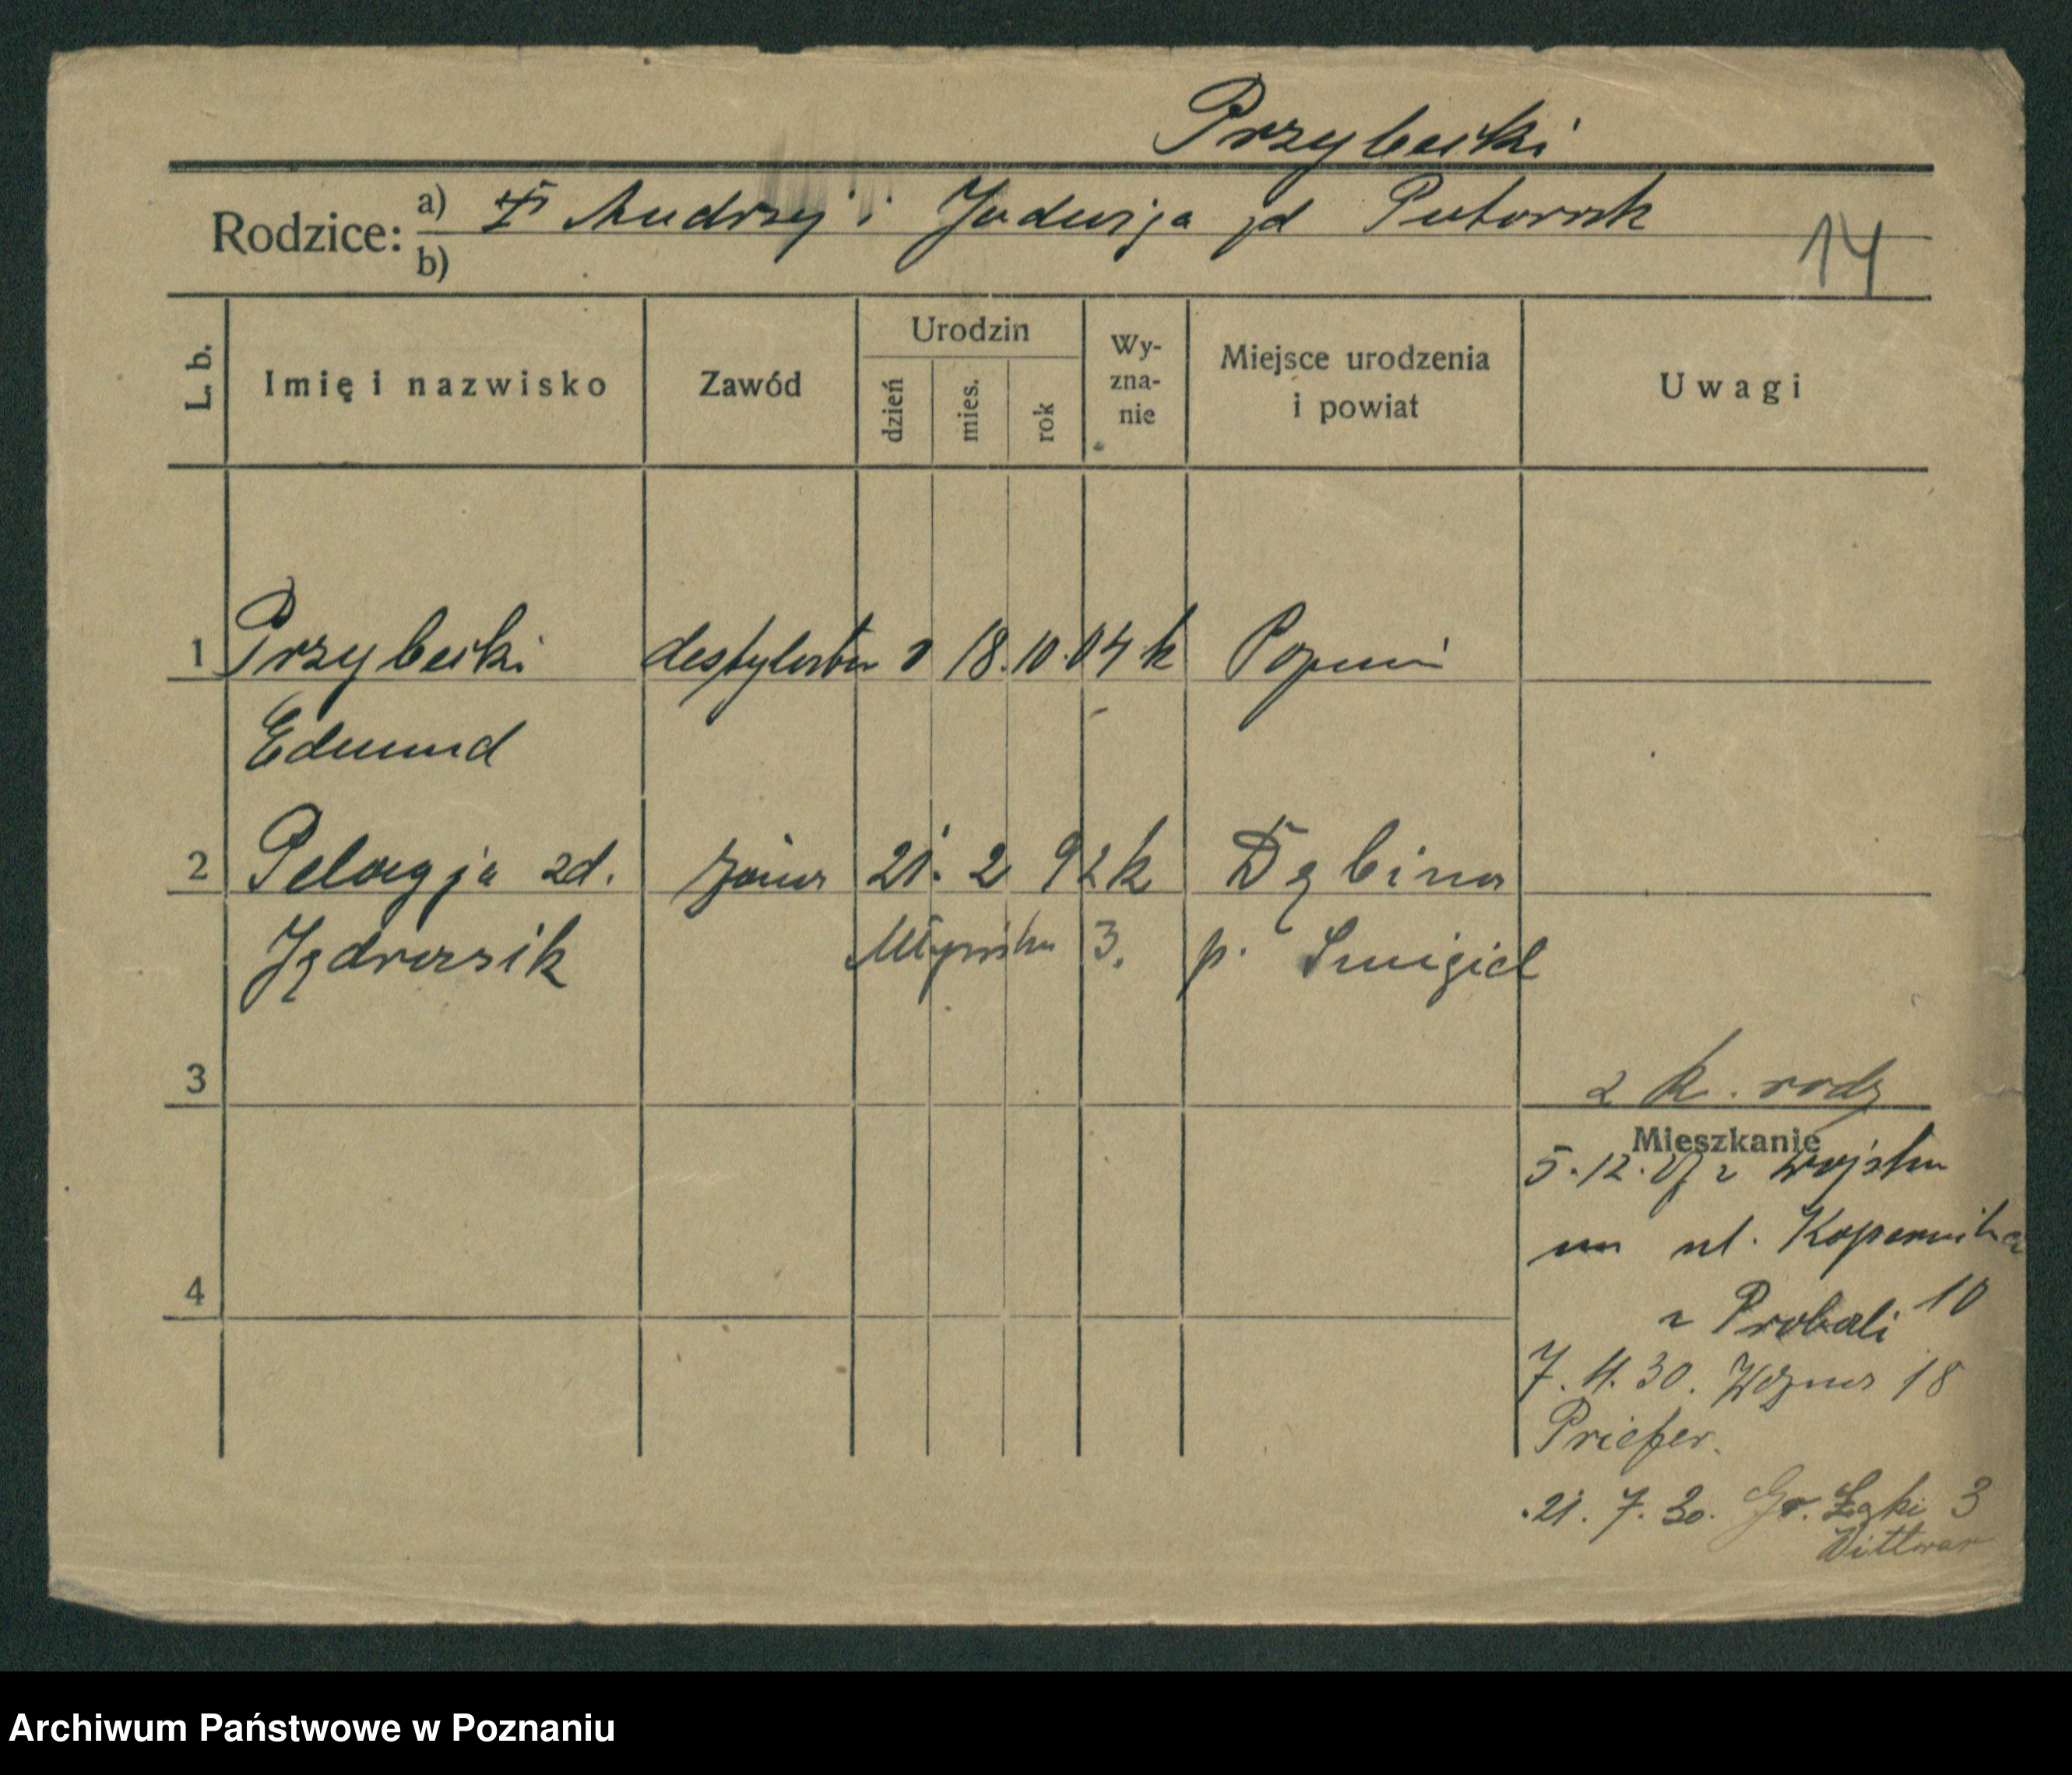 Przybecki
Rodzice: a) Andrzej i Jadwiga zd
b)
14
L. b. Imię i nazwisko Zawód Urodzin dzień mies. rok Wy-zna-nie Miejsce urodzenia i powiat Uwagi
1 Przybecki 18. 10. 04 k Poznań
Edmund
2 Pelagja zd. żona 21. 2 92 k Dębina
3. p. Śmigiel
3 z k. rodz
Mieszkanie
5. 12. z wojska
na ul. Kopernika
4 10
7. 4. 30. 18
Priefer.
21. 7. 30. Gr. Łąki 3
Wittwer
Archiwum Państwowe w Poznaniu